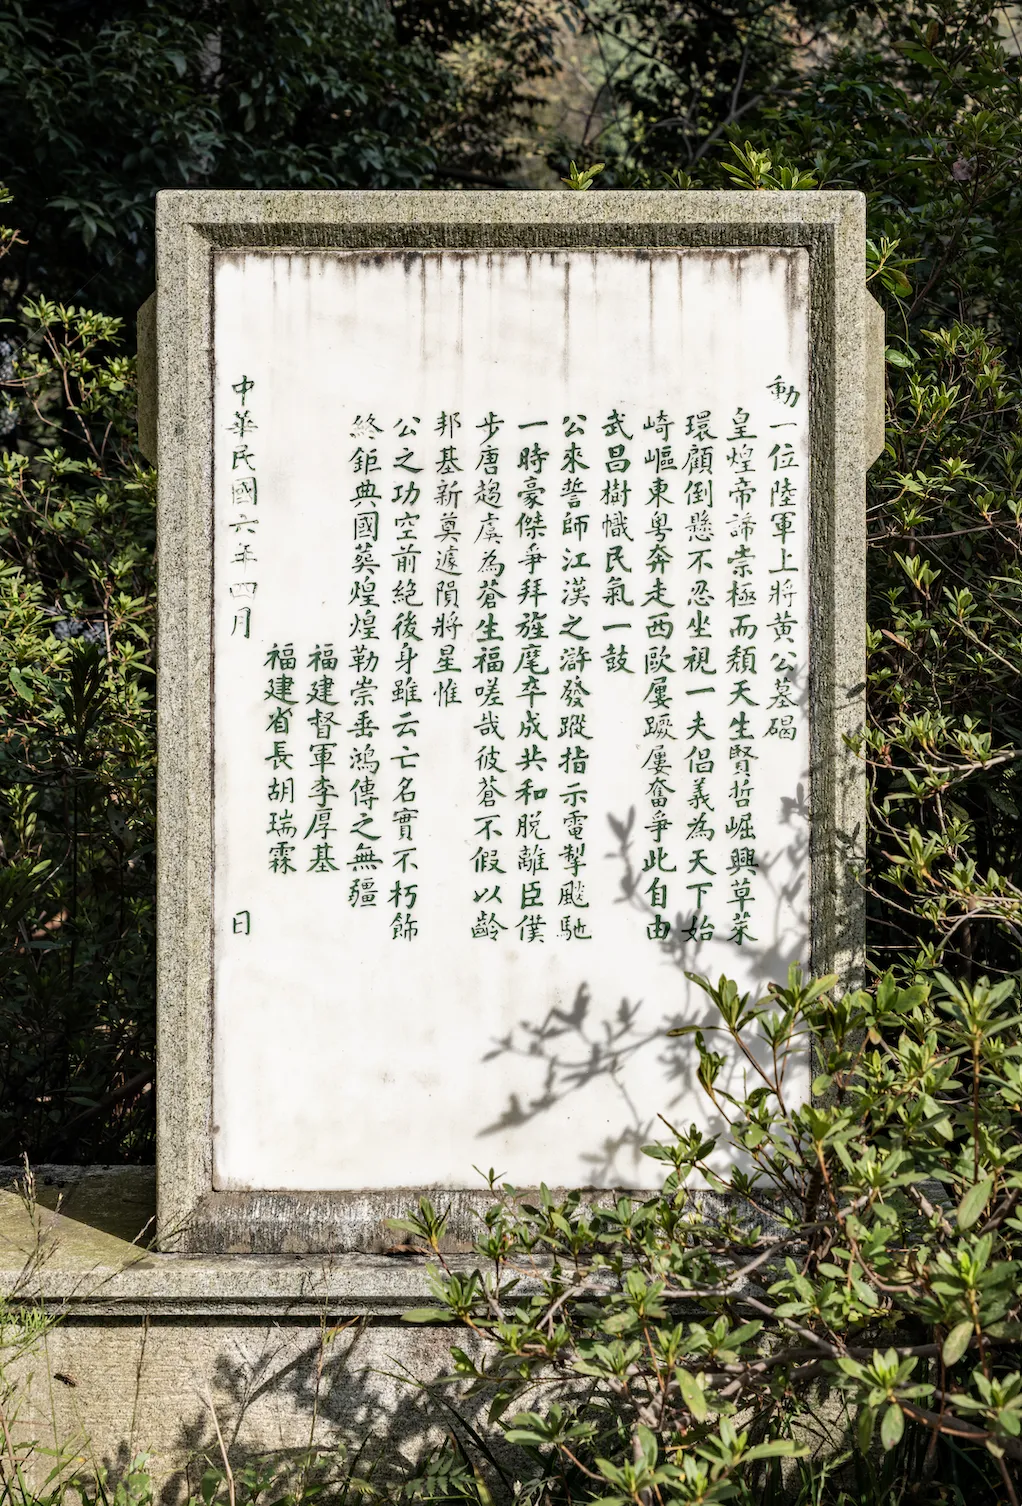 勳一位陸軍上將黄公墓碣
皇煌帝諦崇極而頹天生賢哲崛興草萊
環顧倒懸不忍坐視一夫倡義為天下始
崎嶇東粤奔走西歐屢蹶屢奮爭此自由
武昌樹幟民氣一鼓
公來誓師江漢之滸發蹤指示電掣飈馳
一時豪傑爭拜旌麾卒成共和脱離臣僕
步唐趨虞為蒼生福嗟哉彼蒼不假以齡
邦基新奠遽隕將星惟
公之功空前絶後身雖云亡名實不朽飾
終鉅典國葬煌煌勒崇垂鴻傳之無疆
福建督軍李厚基
福建省長胡瑞霖
中華民國六年四月　日